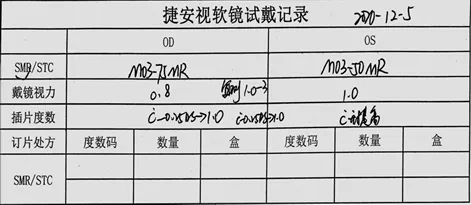 捷安视软镜试戴记录 2020-12-5
OD OS
SMR/STC M03-75MR M03-50MR
戴镜视力 0.8 1.0-3 1.0
插片度数 c̄-0.50DS→1.0
订片处方 度数码 数量 盒 度数码 数量 盒
SMR/STC